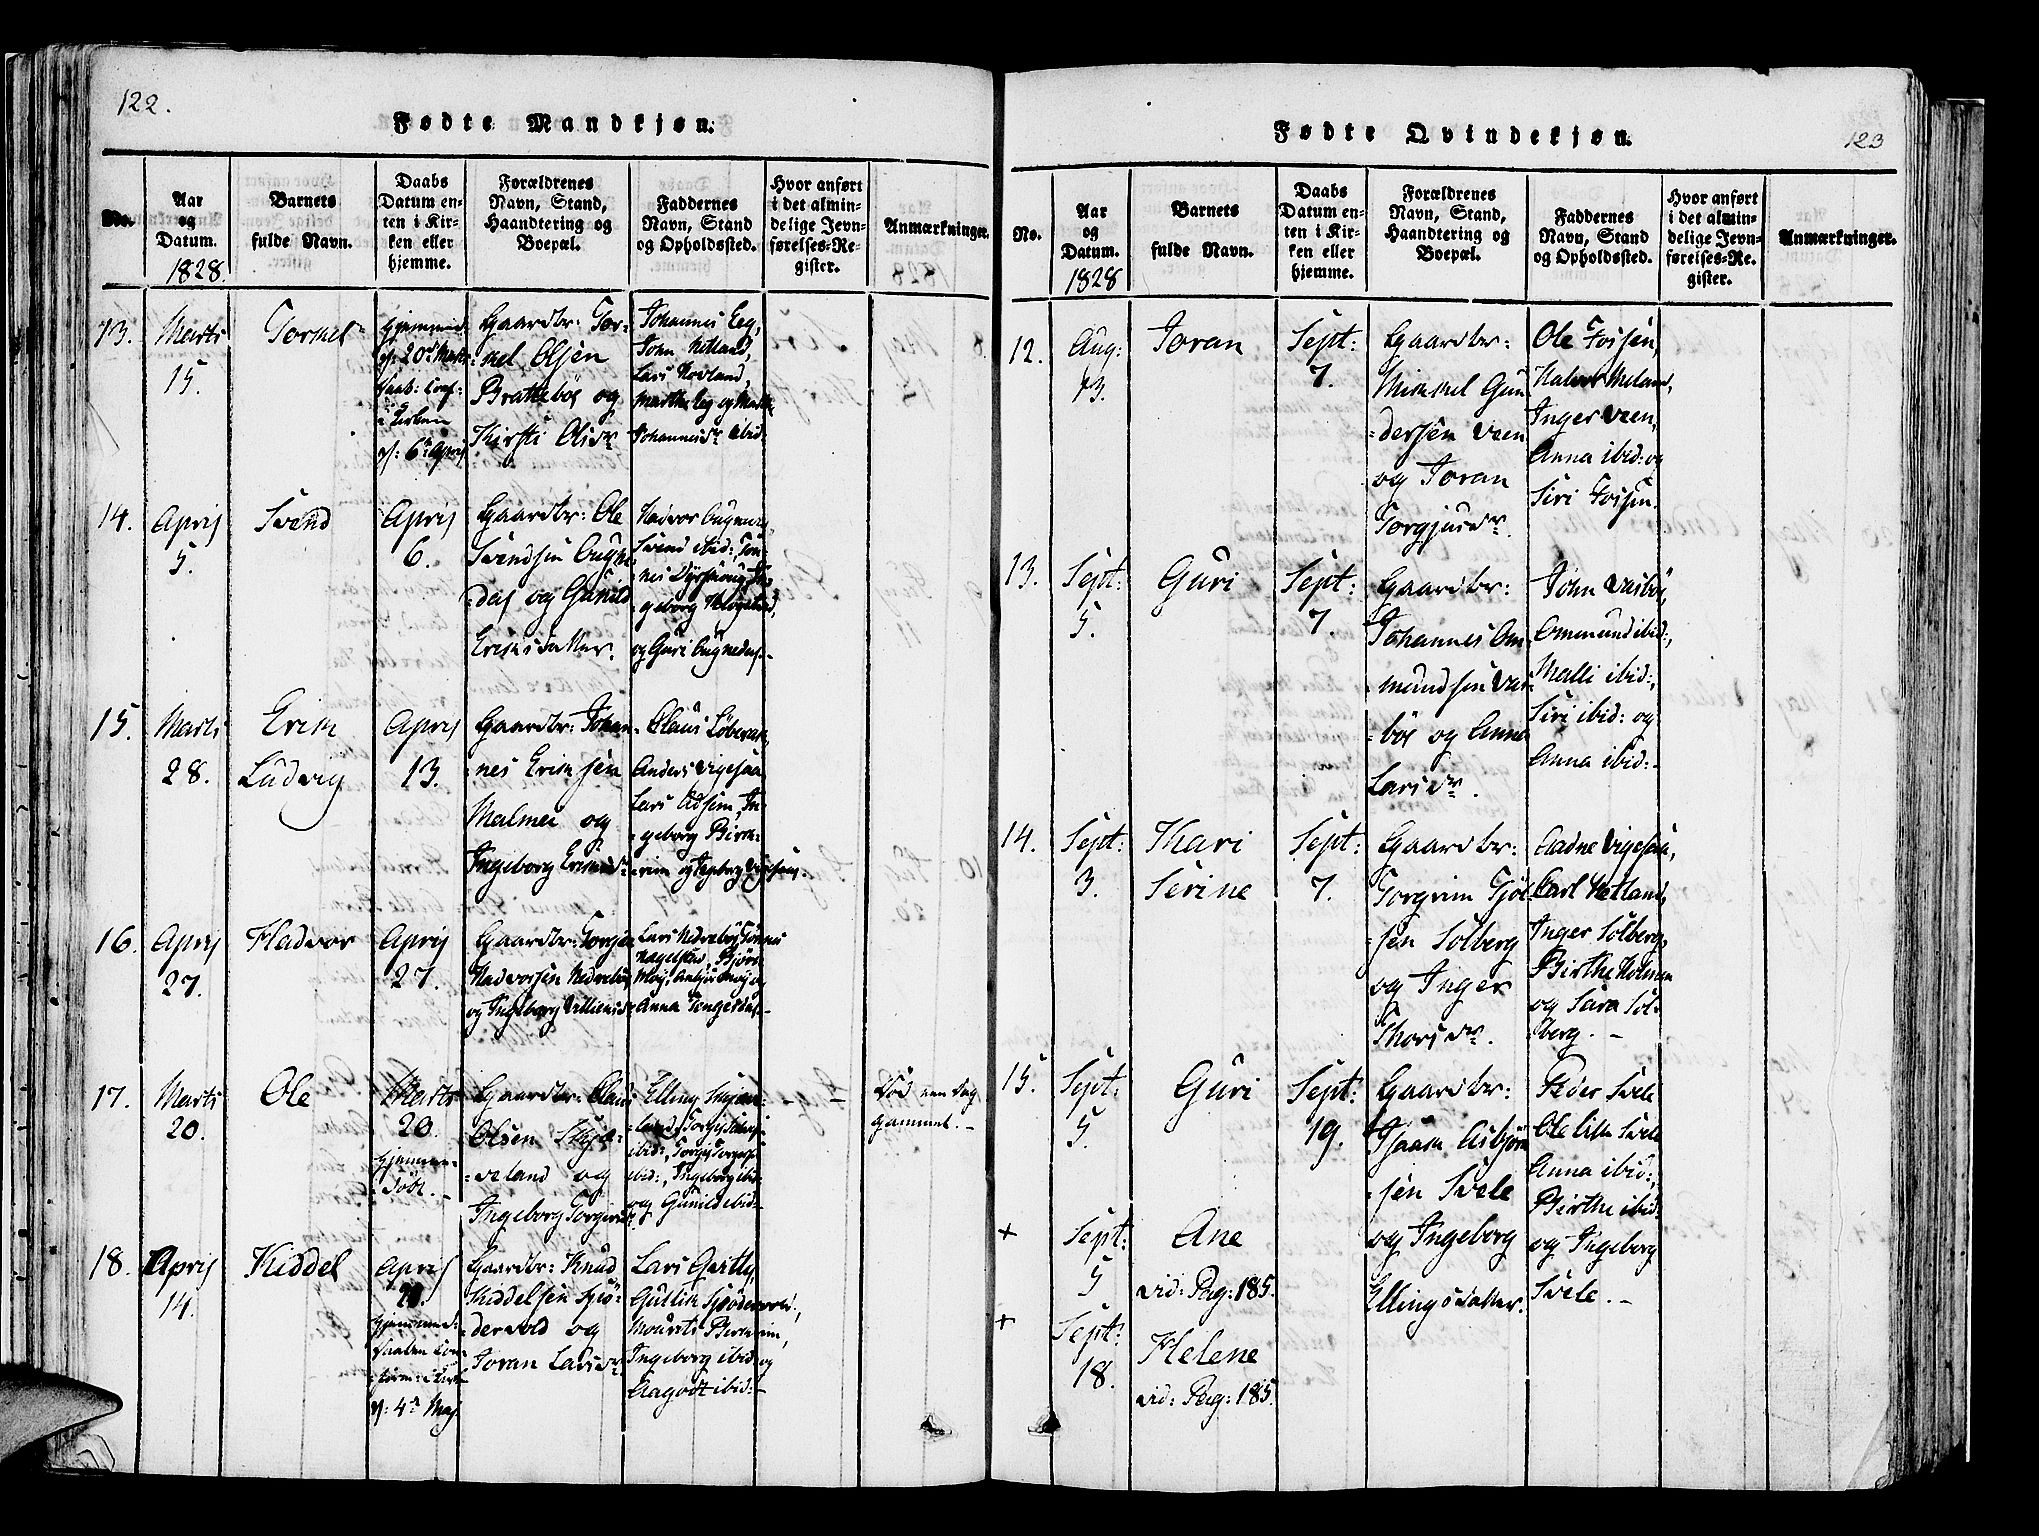 122.
Fødte Mandkjøn.
No.
Aar
og
Datum.
1828.
Barnets
fulde Navn.
Daabs
Datum en-
ten i Kir-
ken eller
hjemme.
Forældrenes
Navn, Stand,
Haandtering og
Boepæl.
Faddernes
Navn, Stand
og Opholdssted.
Hvor anført
i det almin-
delige Jevn-
førelses-Re-
gister.
Anmærkninger.
13.
Marts
15.
Tormel
hjemmed:
d: 20de Marts
i Kirken
d: 6te Apris
Gaardbr: Tor-
mel Olsen
Brattebøe og
Kirsti Olsdr
Johannes Eeg,
John Netland,
Lars Hovland,
Marthe Eeg og Marthe
Johannesdr ibid:
14.
Apris
5.
Svend
Apris
6.
Gaardbr: Ole
Svendsen Øugne-
das og Gunild
Eriksdatter.
Hadvor Øugneda,
Svend ibid: Tøn-
nes Dyrskoug, In-
geborg Helgeland,
og Guri Øugnedas.-
15.
Marts
28.
Erik
Ludvig
Apris
13.
Gaardbr: Johan-
nes Eriksen
Malmei og
Ingeborg Eriksdr
Claus Løbrek,
Anders Vigesaa
Lars Odsem, In-
geborg Birk-
reim og Ingeborg Vigesaa.
16.
Apris
27.
Hadvor
Apris
27.
Gaardbr: Torger
Hadvorsen Nedrebøe
og Ingeborg Villiumsdr
Lars Nedrebøe, Tønnes
Hegelstad, Bjørn
Moij, Anlaug Moij og
Anna Tengesdas.-
17.
Marts
20.
Ole
Marts
20.
hjemme-
døbt.-
Gaardbr: Claus
Olsen Skjæ-
veland og
Ingeborg Torgersdr
Elling Skjæve-
land, Torger
ibid:, Torger Torgers:
ibid:, Ingeborg ibid:
og Gunild ibid:-
- -
Død een Dag
gammel.-
18.
Apris
14.
Kiddel
Apris
20.
hjemmed:
Daaben Con-
firm: i Kirk
d: 4de Maj.
Gaardbr: Knud
Kiddelsen Sjø-
dervold og
Joran Larsdr
Lars Gjætle,
Gullik Sjødervold,
Mourits Birkreim,
Ingeborg ibid: og
Aagodt ibid:-
Fødte Qvindekjøn.
123
No.
Aar
og
Datum.
1828
Barnets
fulde Navn.
Daabs
Datum en-
ten i Kir-
ken eller
hjemme.
Forældrenes
Navn, Stand,
Haandtering og
Boepæl.
Faddernes
Navn, Stand
og Opholdssted.
Hvor anført
i det almin-
delige Jevn-
førelses-Re-
gister.
Anmærkninger.
12.
Aug:
13.
Joran
Sept:
7.
Gaardbr:
Mikkel Gun
dersen Veen
og Joran
Torgjusdr.
Ole Fossen,
Halvor Meland,
Inger Veen,
Anna ibid: og
Siri Fossen.
13.
Sept:
5.
Guri
Sept:
7.
Gaardbr:
Johannes Om
mundsen Vas-
bøe og Anna
Larsdr.
John Vasbøe,
Ommund ibid:,
Malli ibid:,
Siri ibid: og
Anna ibid:-
14.
Sept:
3.
Kari
Serine
Sept:
7.
Gaardbr:
Torgrim Tjøl-
sen Solberg
og Inger
Thorsdr.
Aadne Vigesaa,
Carl Hetland,
Inger Solberg,
Birthe Holmen
og Sara Sol-
berg.-
15.
Sept:
5.
Guri
Sept:
19.
Gaardbr:
Isaak Asbjørn
sen Svele
og Ingeborg
Ellingsdatter.
Peder Svele
Ole Lille Svele
Anna ibid:,
Birthe ibid:
og Ingeborg
Svele.-
+
Sept:
5
Ane
vid: Pag: 185.
+
Sept:
18.
Helene
vid: Pag: 185.